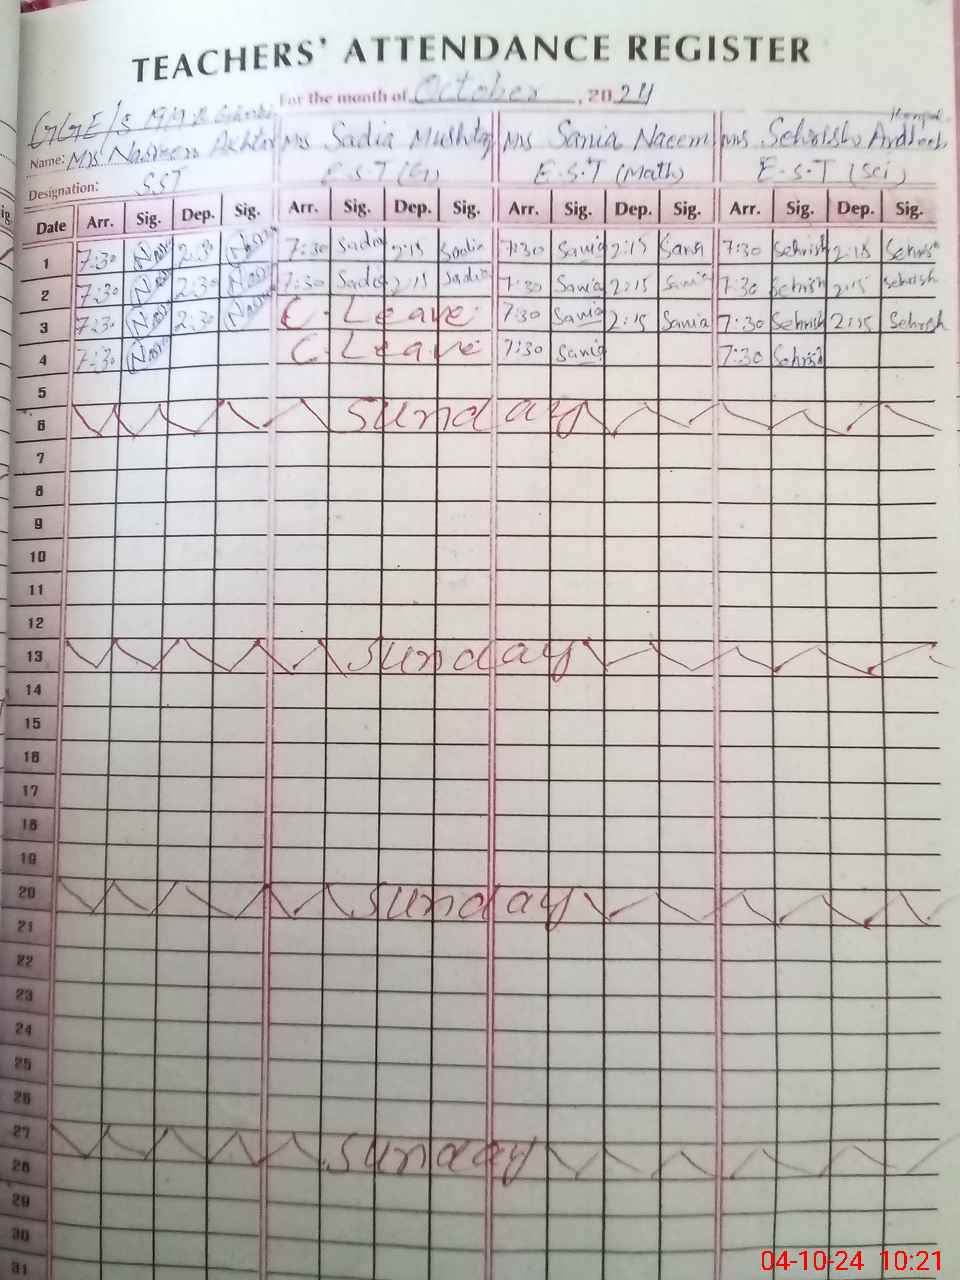 TEACHERS' ATTENDANCE REGISTER
For the month of October, 2024
GGE/S 19/9 R
Name: Mrs Nasreen Akhtar Ms Sadia Mushtaq Ms Sania Naeem Mrs Sehrish
Designation: SST E.S.T (G) E.S.T (Math) E.S.T (Sci)
Date Arr. Sig. Dep. Sig. Arr. Sig. Dep. Sig. Arr. Sig. Dep. Sig. Arr. Sig. Dep. Sig.
1 7:30 Nasr 2:30 Nasr 7:30 Sadia 2:15 Sadia 7:30 Sania 2:15 Sania 7:30 Sehrish 2:15 Sehrish
2 7:30 Nasr 2:30 Nasr 7:30 Sadia 2:15 Sadia 7:30 Sania 2:15 Sania 7:30 Sehrish 2:15 Sehrish
3 7:30 Nasr 2:30 Nasr C. Leave 7:30 Sania 2:15 Sania 7:30 Sehrish 2:15 Sehrish
4 7:30 Nasr C. Leave 7:30 Sania 7:30 Sehrish
5
6 Sunday
7
8
9
10
11
12
13 Sunday
14
15
16
17
18
19
20 Sunday
21
22
23
24
25
26
27 Sunday
28
29
30
31
04-10-24 10:21